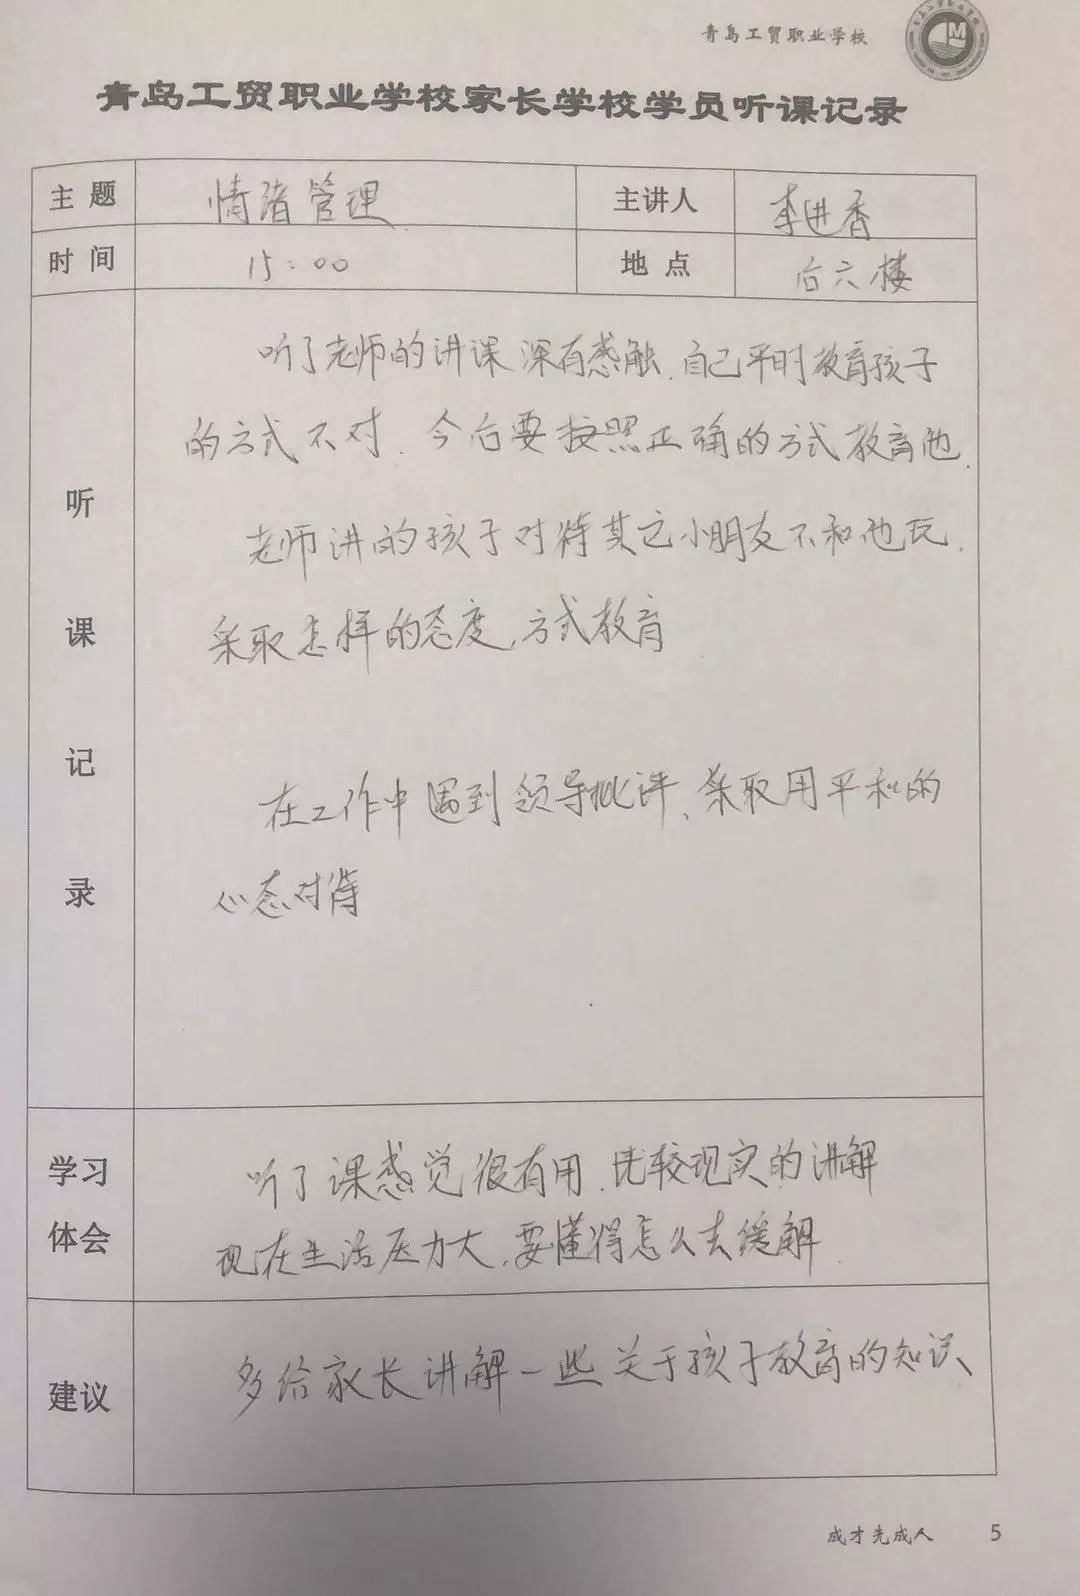 青岛工贸职业学校
青岛工贸职业学校家长学校学员听课记录
主题 情绪管理 主讲人 李进香
时间 15:00 地点 后六楼
听课记录
听了老师的讲课深有感触.自己平时教育孩子
的方式不对.今后要按照正确的方式教育他.
老师讲的孩子对待其它小朋友不和他玩.
采取怎样的态度,方式教育
在工作中遇到领导批评、采取用平和的
心态对待
学习体会
听了课感觉很有用.比较现实的讲解
现在生活压力大,要懂得怎么去缓解.
建议
多给家长讲解一些关于孩子教育的知识
成才先成人 5